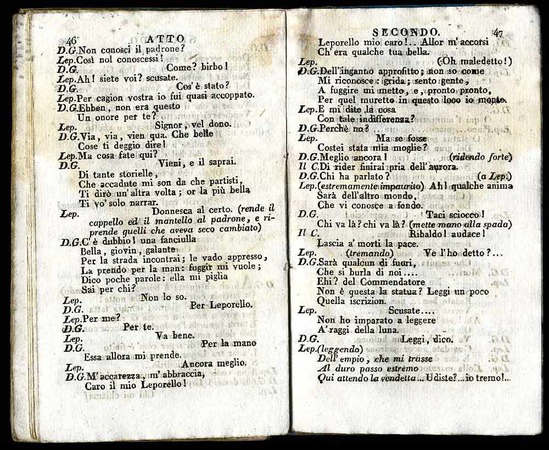 46 ATTO
D.G.Non conosci il padrone?
Lep.Così nol conoscessi!
D.G. Come? birbo!
Lep.Ah! siete voi? scusate.
D.G. Cos'è stato?
Lep.Per cagion vostra io fui quasi accoppato.
D.G.Ebben, non era questo
Un onore per te?
Lep. Signor, vel dono.
D.G.Via, via, vien qua. Che belle
Cose ti deggio dire!
Lep.Ma cosa fate qui?
D.G. Vieni, e il saprai.
Di tante storielle,
Che accadute mi son da che partisti,
Ti dirò un'altra volta; or la più bella
Ti vo' solo narrar.
Lep. Donnesca al certo. (rende il
cappello ed il mantello al padrone, e ri-
prende quelli che aveva seco cambiato)
D.G.C'è dubbio! una fanciulla
Bella, giovin, galante
Per la strada incontrai; le vado appresso,
La prendo per la man: fuggir mi vuole;
Dico poche parole: ella mi piglia
Sai per chi?
Lep. Non lo so.
D.G. Per Leporello.
Lep.Per me?
D.G. Per te.
Lep. Va bene.
D.G. Per la mano
Essa allora mi prende.
Lep. Ancora meglio.
D.G.M'accarezza, m'abbraccia,
Caro il mio Leporello!
SECONDO. 47
Leporello mio caro!.. Allor m'accorsi
Ch'era qualche tua bella.
Lep. (Oh maledetto!)
D.G.Dell'inganno approfitto; non so come
Mi riconosce: grida; sento gente,
A fuggire mi metto, e, pronto pronto,
Per quel muretto in questo loco io monto.
Lep.E mi dite la cosa
Con tale indifferenza?
D.G.Perchè no?
Lep. Ma se fosse
Costei stata mia moglie?
D.G.Meglio ancora! (ridendo forte)
Il C.Di rider finirai pria dell'aurora.
D.G.Chi ha parlato? (a Lep.)
Lep.(estremamente impaurito) Ah! qualche anima
Sarà dell'altro mondo,
Che vi conosce a fondo.
D.G. Taci sciocco!
Chi va là? chi va là? (mette mano alla spada)
Il C. Ribaldo! audace!
Lascia a' morti la pace.
Lep. (tremando) Ve l'ho detto?...
D.G.Sarà qualcun di fuori,
Che si burla di noi....
Ehi? del Commendatore
Non è questa la statua? Leggi un poco
Quella iscrizion.
Lep. Scusate....
Non ho imparato a leggere
A' raggi della luna.
D.G. Leggi, dico.
Lep.(leggendo)
Dell'empio, che mi trasse
Al duro passo estremo
Qui attendo la vendetta... Udiste?...io tremo!..